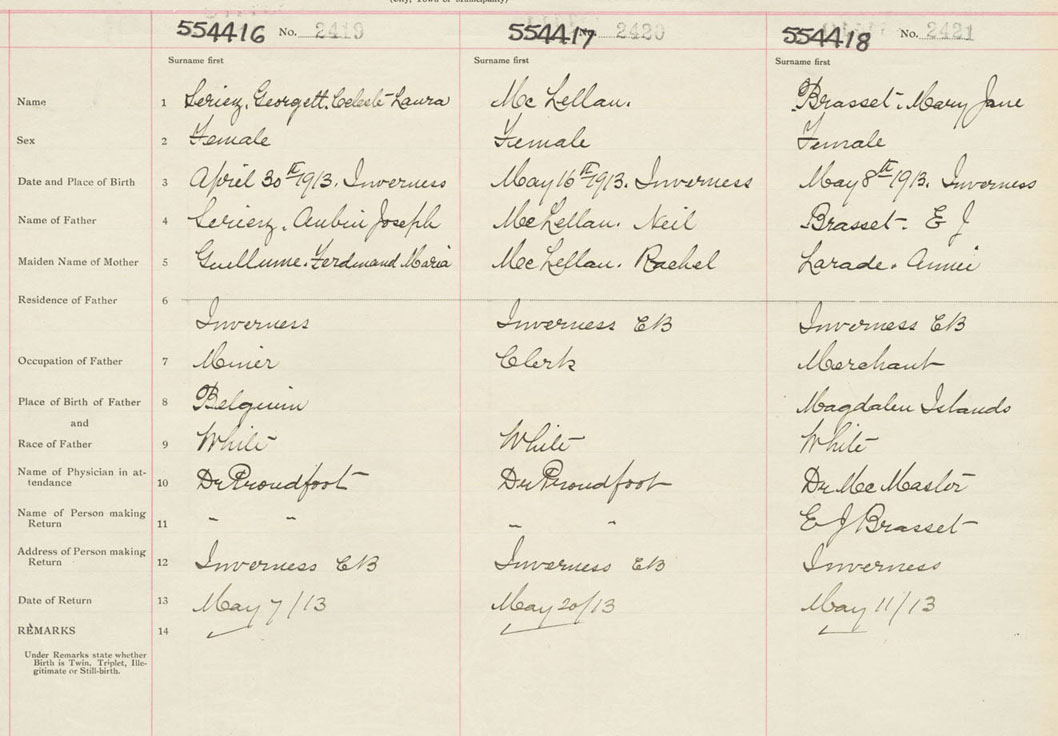 (City, Town or Municipality)
554416 No. 2419 554417 No. 2420 554418 No. 2421
Surname first Surname first Surname first
Name 1 Georgett. Celeste Laura Mc Lellan. Brasset. Mary Jane
Sex 2 Female Female Female
Date and Place of Birth 3 April 30th 1913. Inverness May 16th 1913. Inverness May 8th 1913. Inverness
Name of Father 4 Aubin Joseph Mc Lellan. Neil Brasset. E J
Maiden Name of Mother 5 Guellume. Ferdinand Maria Mc Lellan. Rachel Larade. Annie
Residence of Father 6
Inverness Inverness CB Inverness CB
Occupation of Father 7 Miner Clerk Merchant
Place of Birth of Father 8 Belguim Magdalen Islands
and
Race of Father 9 White White White
Name of Physician in at-
tendance 10 Dr Proudfoot Dr Proudfoot Dr Mc Master
Name of Person making
Return 11 " " " " E J Brasset
Address of Person making
Return 12 Inverness CB Inverness CB Inverness
Date of Return 13 May 7/13 May 20/13 May 11/13
REMARKS 14
Under Remarks state whether
Birth is Twin, Triplet, Ille-
gitimate or Still-birth.